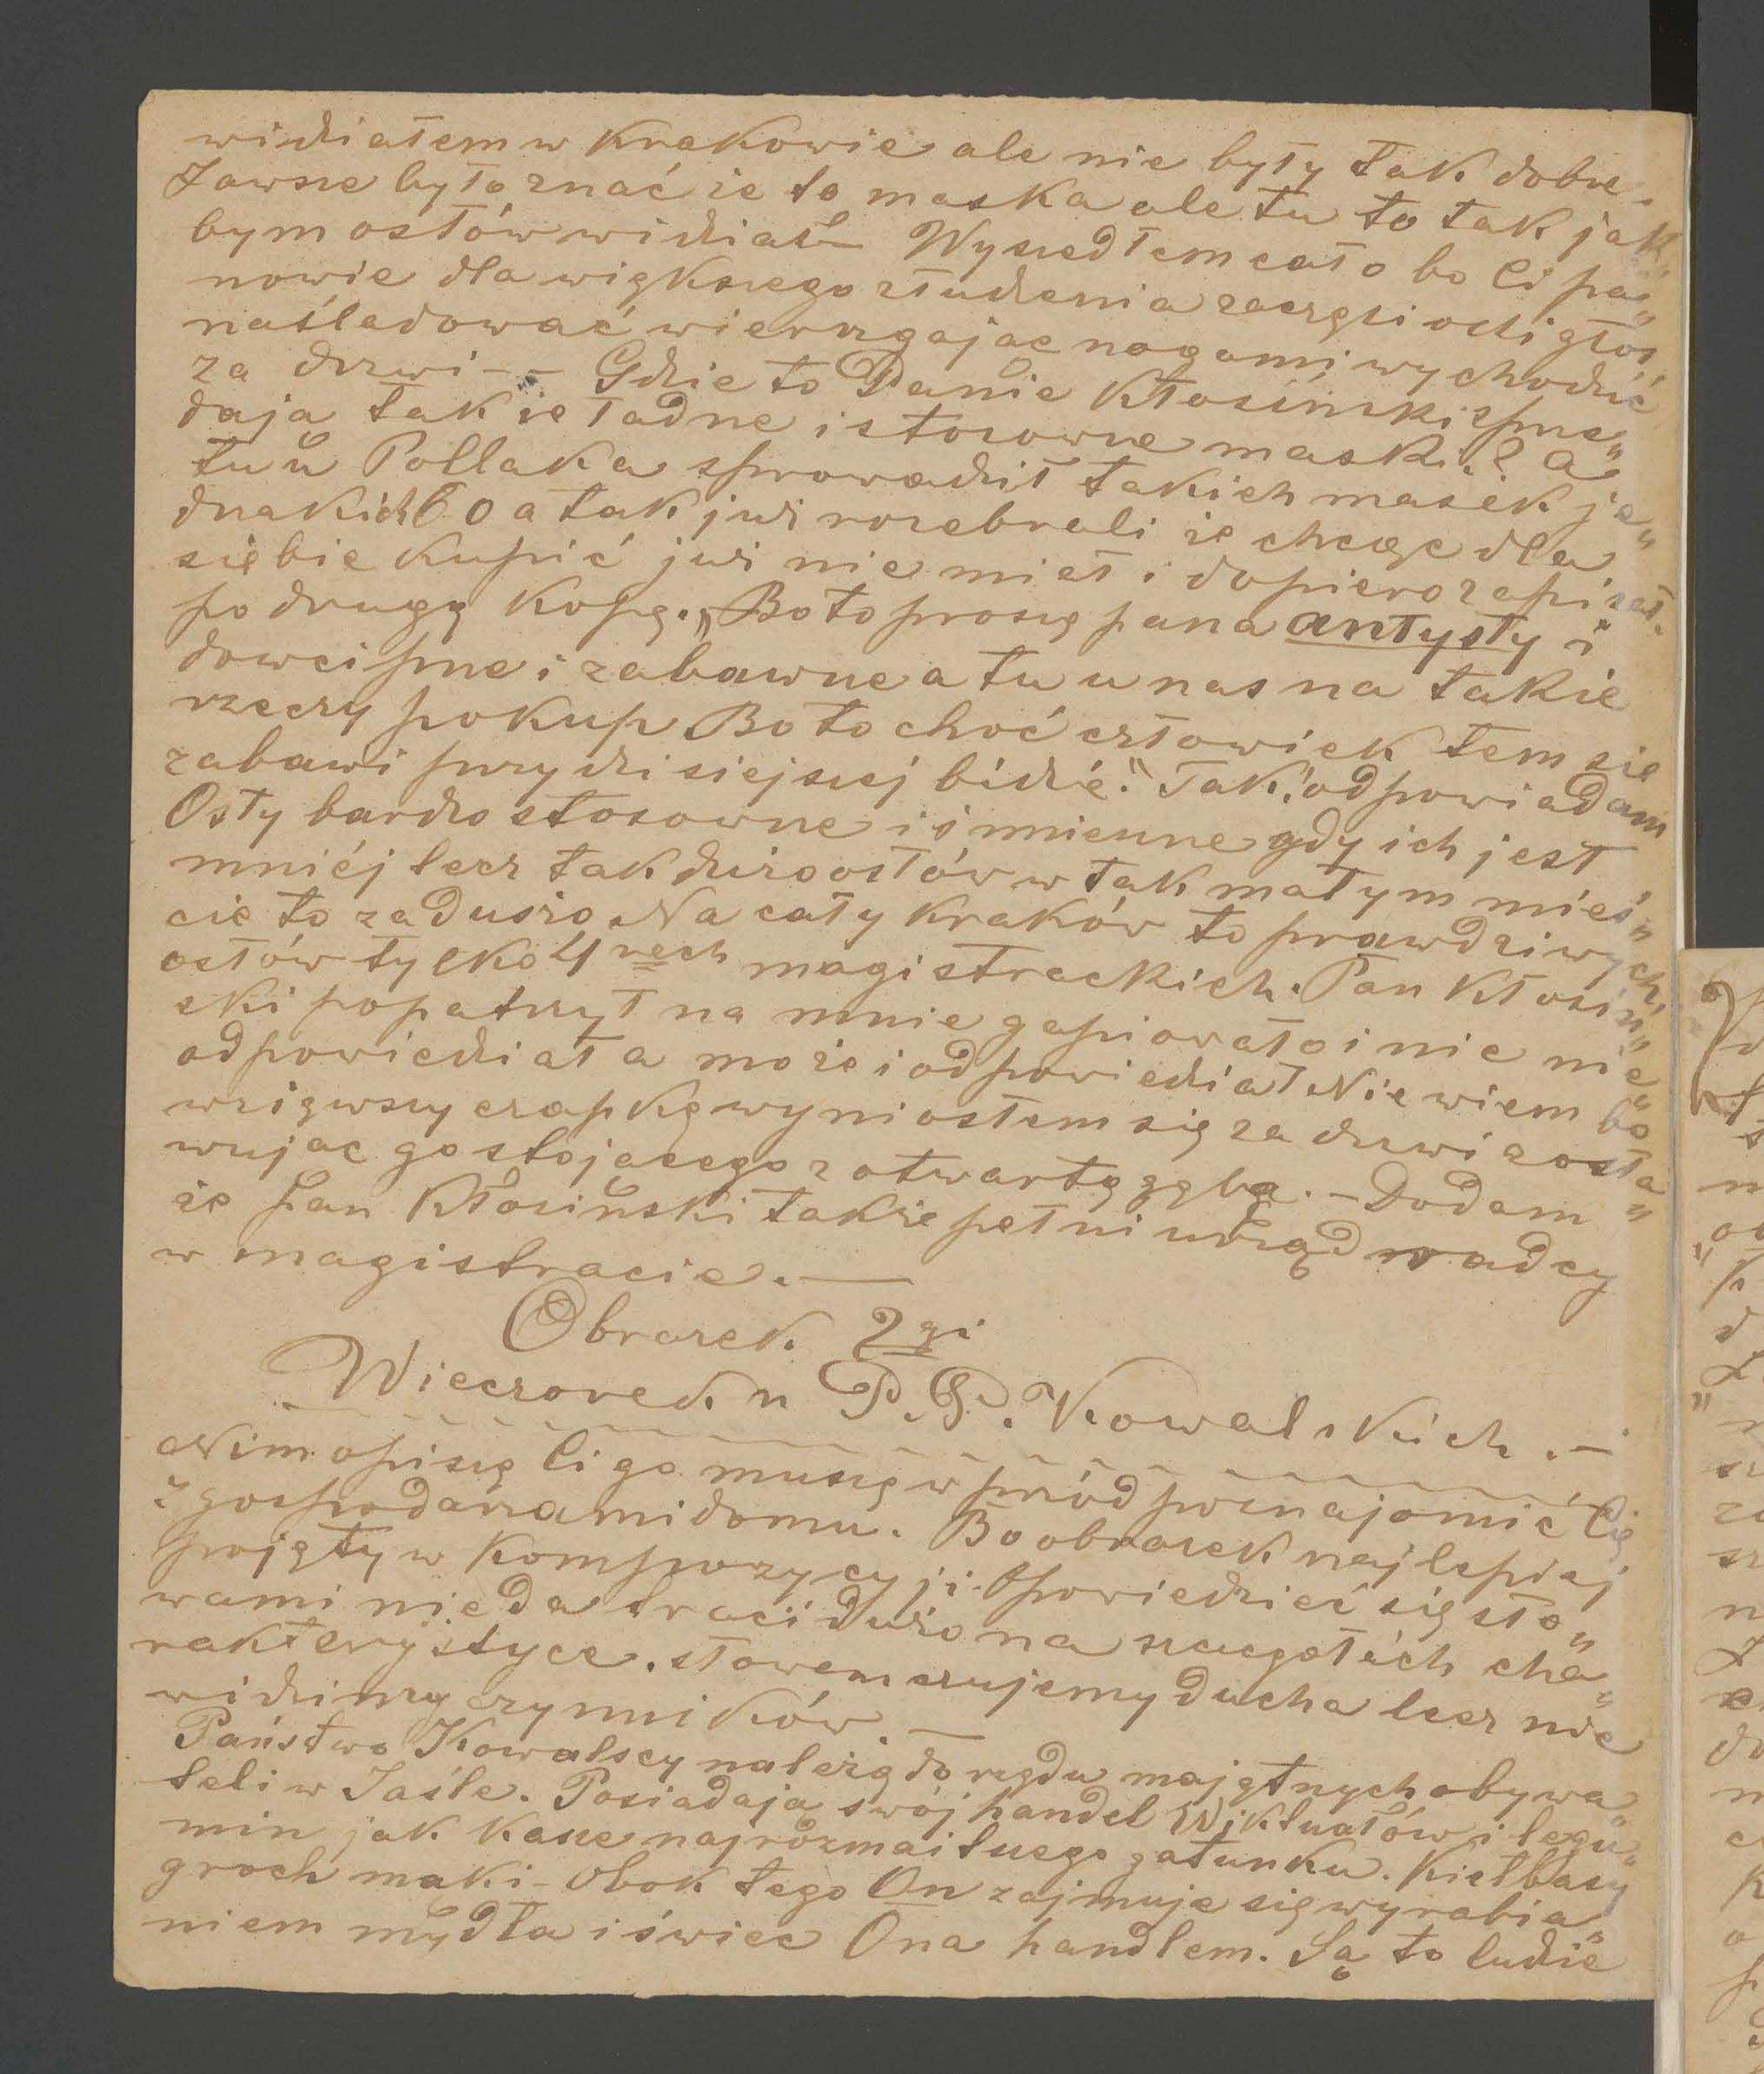 widziałem w Krakowie ale nie były tak dobre.
Zawsze było znać że to maska ale tu to tak jak„
bym osłów widział — Wyszedłem cało bo Ci pa„
nowie dla większego złudzenia zaczęli ośli głos
naśladować wierzgajac nogami wychodzić
za drzwi -- Gdzie to Panie Kłosiński sprze„
daja takie ładne i stosowne maski? a
tu u Pollaka sprowadził takich masek je„
dnakich 60 a tak już rozebrali że chcąc dla
siebie kupić już nie miał i dopiero zapisał
po drugą kopę. „Bo to proszę pana artysty i
dowcipne i zabawne a tu u nas na takie
rzeczy pokup Bo to choć człowiek tem się
zabawi przy dzisiejszej bidzie." Tak! odpowiadam
Osły bardzo stosowne i śmieszne gdy ich jest
mniéj lecz tak dużo osłów w tak małym mieś„
cie to za dużo. Na cały Kraków to prawdziwych
osłów tylko 4 rech magistrackich. Pan Kłosiń„
ski popatrzył na mnie gapiowato i nic nie
odpowiedział a może i odpowiedział Nie wiem bo
wziąwszy czapkę wyniosłem się za drzwi zosta„
wujac go stojącego z otwartą gębą. — Dodam
że Pan Kłosiński także pełni urząd radcy
w magistracie. —
Obrazek 2gi
Wieczorek u P.P. Kowalskich. —
Nim opiszę Ci go muszę wpród poznajomić Cię
z gospodarzami domu. Bo obrazek najlepiej
pojęty w kompozycyji. Opowiedzieć się sło„
wami nie da traci dużo na szczegółach cha„
rakterystyce. słowem czujemy ducha lecz nie
widzimy czynników —
Państwo Kowalscy należą do rzędu majętnych obywa„
teli w Jaśle. Posiadają swój handel Wiktuałów i legu„
min jak kasze najrozmaitszego gatunku. Kiełbasy
groch maki - Obok tego On zajmuje się wyrabia„
niem mydła i świec Ona handlem. Są to ludzie